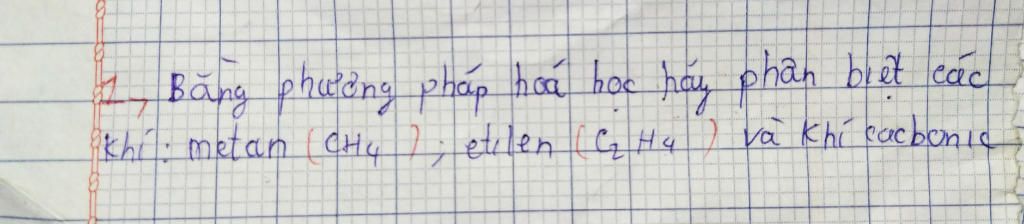 1, Bằng phương pháp hoá học hãy phân biệt các
khí: metan (CH4); etilen (C2H4) và khí cacbonic